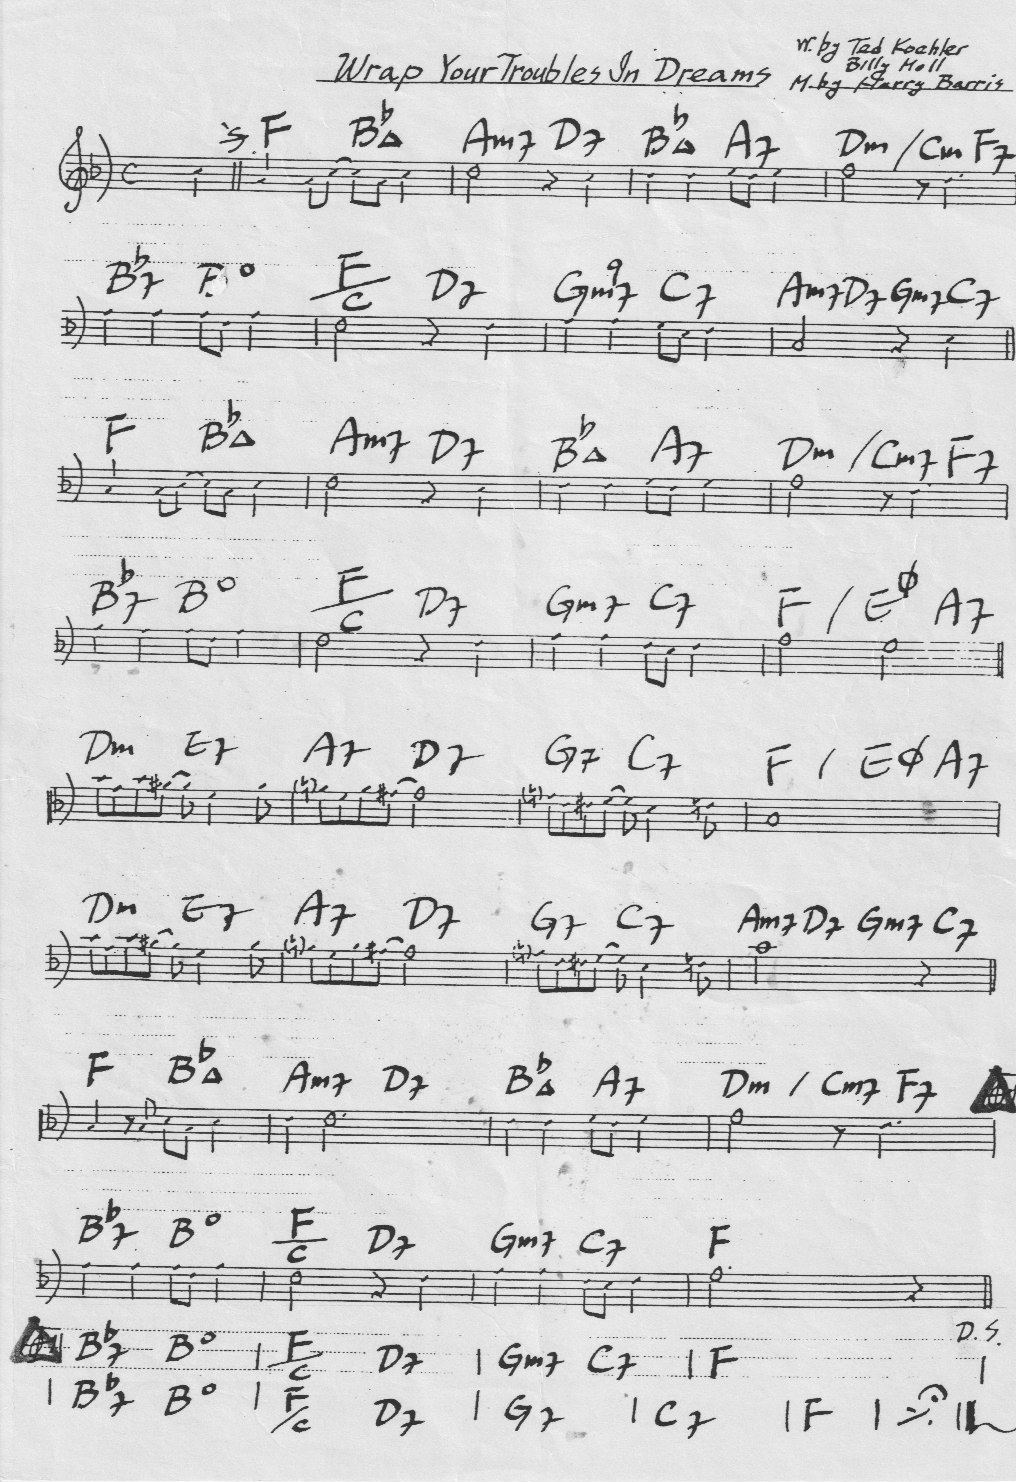 W. by Ted Koehler
Billy Moll
Wrap Your Troubles In Dreams
M. by Harry Barris
F B♭△ Am7 D7 B♭△ A7 Dm / Cm F7
B♭7 B° F/C D7 Gm7 9 C7 Am7 D7 Gm7 C7
F B♭△ Am7 D7 B♭△ A7 Dm / Cm7 F7
B♭7 B° F/C D7 Gm7 C7 F / Eø A7
Dm E7 A7 D7 G7 C7 F / Eø A7
Dm E7 A7 D7 G7 C7 Am7 D7 Gm7 C7
F B♭△ Am7 D7 B♭△ A7 Dm / Cm7 F7
B♭7 B° F/C D7 Gm7 C7 F
D.S.
B♭7 B° | F/C D7 | Gm7 C7 | F |
| B♭7 B° | F/C D7 | G7 | C7 | F |